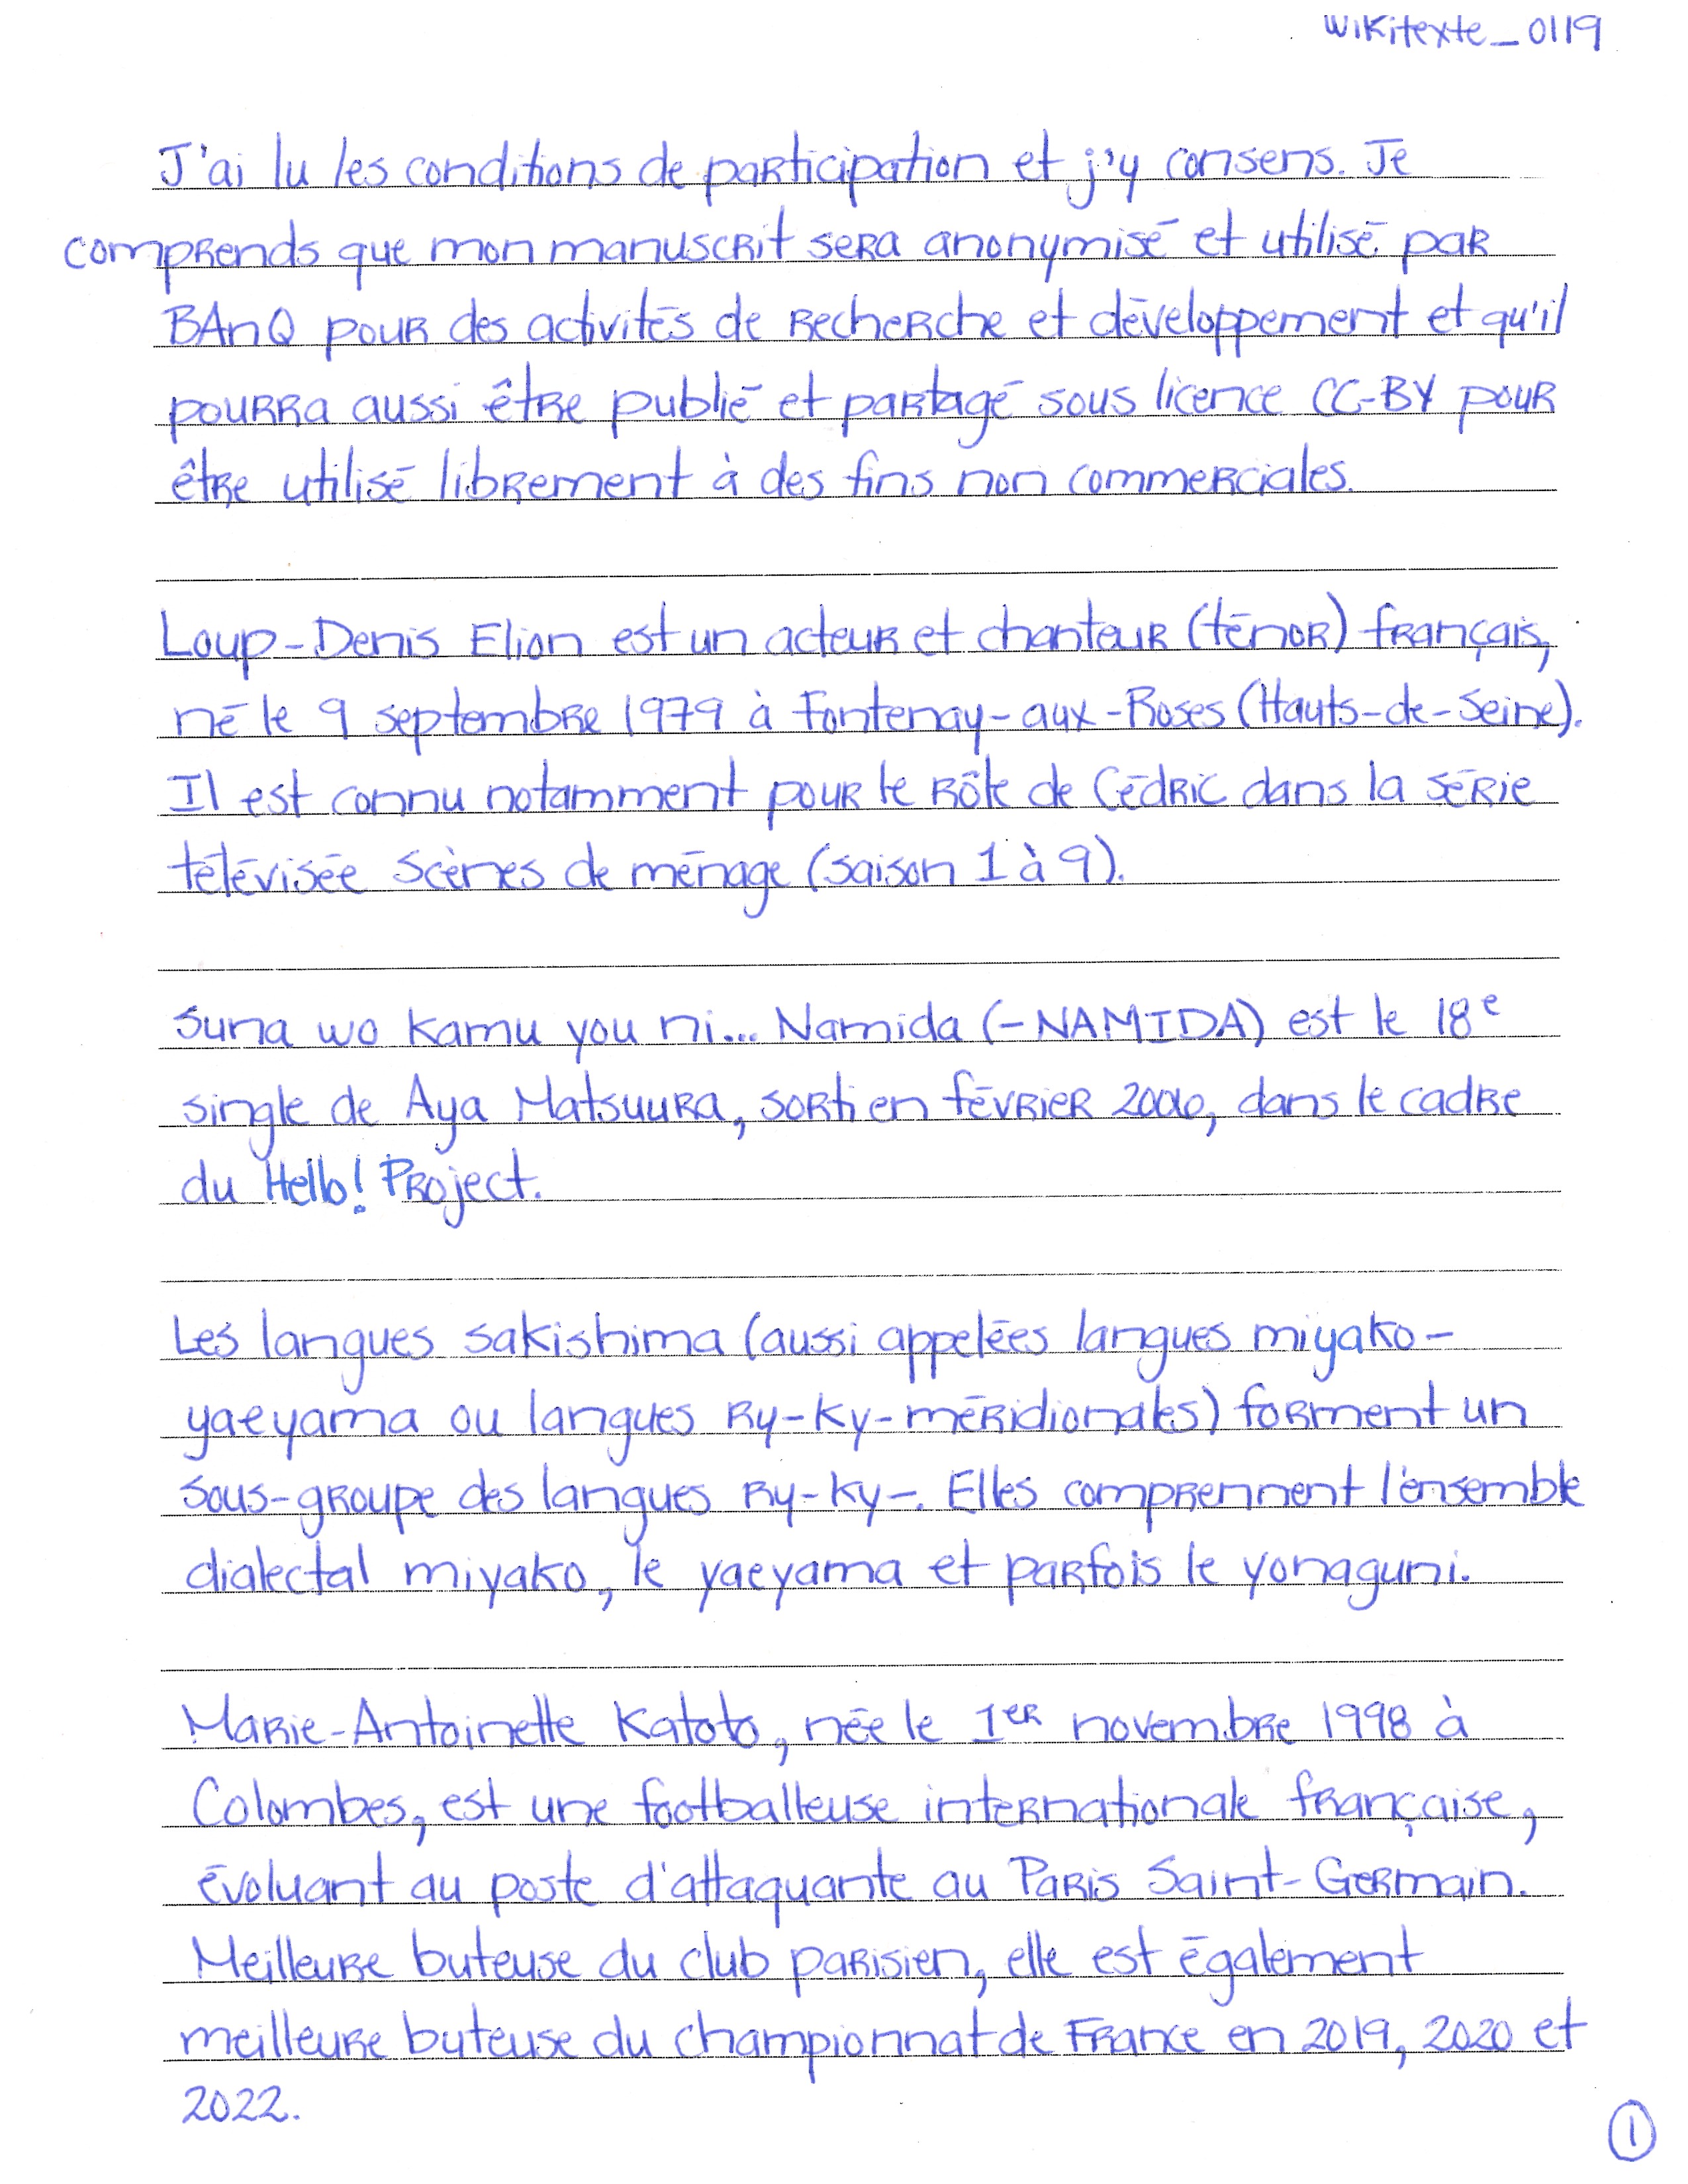 Wikitexte_0119
J'ai lu les conditions de participation et j'y consens. Je
comprends que mon manuscrit sera anonymisé et utilisé par
BAnQ pour des activités de recherche et développement et qu'il
pourra aussi être publié et partagé sous licence CC-BY pour
être utilisé librement à des fins non commerciales.
Loup-Denis Elion est un acteur et chanteur (ténor) français,
né le 9 septembre 1979 à Fontenay-aux-Roses (Hauts-de-Seine).
Il est connu notamment pour le rôle de Cédric dans la série
télévisée Scènes de ménage (saison 1 à 9).
Suna wo Kamu you ni... Namida (-NAMIDA) est le 18e
single de Aya Matsuura, sorti en février 2006, dans le cadre
du Hello! Project.
Les langues sakishima (aussi appelées langues miyako-
yaeyama ou langues Ry-Ky-méridionales) forment un
sous-groupe des langues Ry-Ky-. Elles comprennent l'ensemble
dialectal miyako, le yaeyama et parfois le yonaguni.
Marie-Antoinette Katoto, née le 1er novembre 1998 à
Colombes, est une footballeuse internationale française,
évoluant au poste d'attaquante au Paris Saint-Germain.
Meilleure buteuse du club parisien, elle est également
meilleure buteuse du championnat de France en 2019, 2020 et
2022.
1